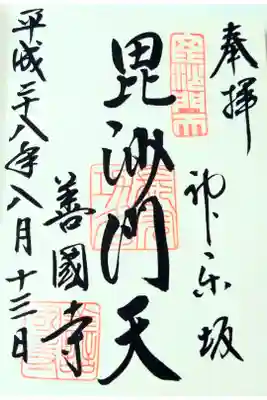 奉拝
神楽坂
毘沙門天
善國寺
平成二十八年八月十三日